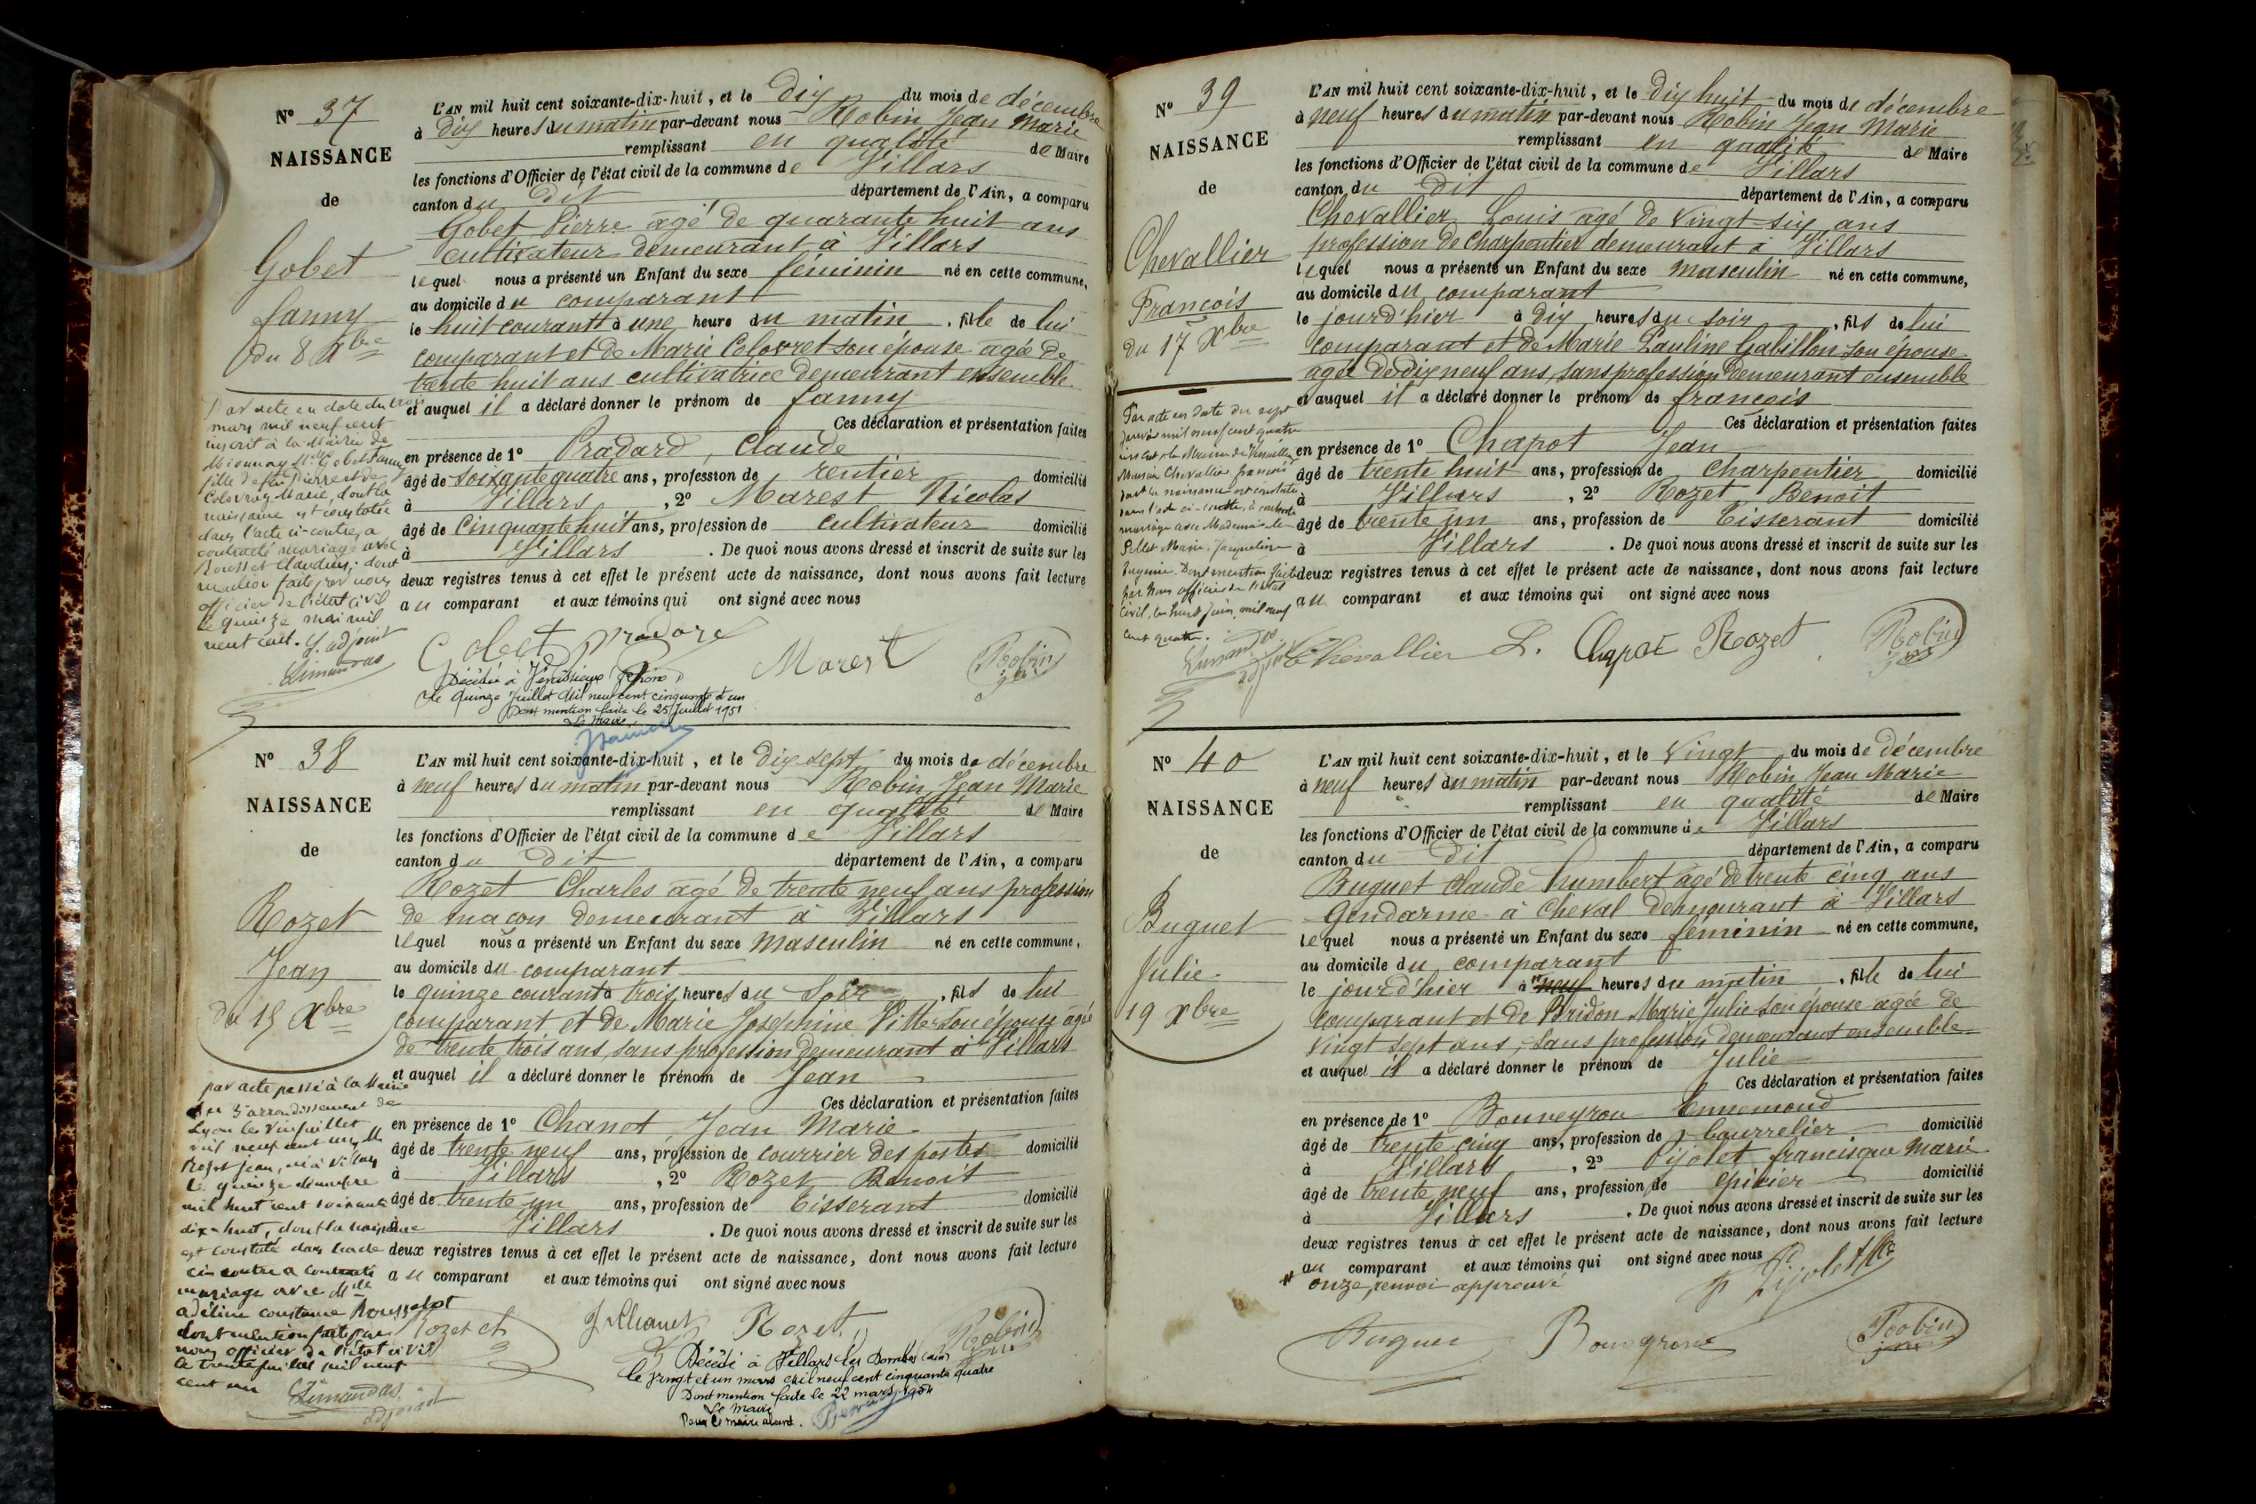 N° 37
NAISSANCE
de
Gobet
fanny
du 8 Xbre
L'AN mil huit cent soixante-dix-huit, et le Dix du mois de décembre
à Dix heures du matin par-devant nous Robin Jean Marie
remplissant en qualité de Maire
les fonctions d'Officier de l'état civil de la commune de Villars
canton du Dit département de l'Ain, a comparu
Gobet Pierre agé de quarante huit ans
cultivateur demeurant à Villars
lequel nous a présenté un Enfant du sexe féminin né en cette commune,
au domicile du comparant
le huit courant à une heure du matin, fille de lui
comparant et de Marie Colovret son épouse agée de
trente huit ans cultivatrice demeurant ensemble
et auquel il a déclaré donner le prénom de fanny
Ces déclaration et présentation faites
en présence de 1° Pradard, Claude
âgé de soixante quatre ans, profession de rentier domicilié
à Villars, 2° Marest Nicolas
âgé de Cinquante huit ans, profession de cultivateur domicilié
à Villars. De quoi nous avons dressé et inscrit de suite sur les
deux registres tenus à cet effet le présent acte de naissance, dont nous avons fait lecture
au comparant et aux témoins qui ont signé avec nous
Gobet Pradard Marest Robin
Par acte en date du trois
mars mil neuf cent
inscrit à la Mairie de
Mionnay Mlle Gobet Fanny
fille de feu Pierre et de
Colovray Marie, dont la
naissance est constatée
dans l'acte ci-contre, a
contracté mariage avec
Claudius, dont
mention faite par nous
officier de l'état civil
le quinze mai mil
neuf cent. L'adjoint
Limandas
Décédée à Vénissieux (Rhône)
le quinze Juillet Mil neuf cent cinquante et un
Dont mention faite le 25 Juillet 1951
Le Maire
N° 38
NAISSANCE
de
Rozet
Jean
du 15 Xbre
L'AN mil huit cent soixante-dix-huit, et le Dix sept du mois de décembre
à neuf heures du matin par-devant nous Robin Jean Marie
remplissant en qualité de Maire
les fonctions d'Officier de l'état civil de la commune de Villars
canton du Dit département de l'Ain, a comparu
Rozet Charles agé de trente neuf ans profession
de maçon demeurant à Villars
lequel nous a présenté un Enfant du sexe masculin né en cette commune,
au domicile du comparant
le quinze courant à trois heures du soir, fils de lui
comparant et de Marie Josephine Vitter son épouse agée
de trente trois ans, sans profession demeurant à Villars
et auquel il a déclaré donner le prénom de Jean
Ces déclaration et présentation faites
en présence de 1° Chanot Jean Marie
âgé de trente neuf ans, profession de courrier des postes domicilié
à Villars, 2° Rozet Benoit
âgé de trente un ans, profession de Tisserant domicilié
à Villars. De quoi nous avons dressé et inscrit de suite sur les
deux registres tenus à cet effet le présent acte de naissance, dont nous avons fait lecture
au comparant et aux témoins qui ont signé avec nous
Rozet ch J Chanot Rozet Robin
par acte passé à la Mairie
du 3e arrondissement de
Lyon le juillet
mil neuf cent un, Mr
Rozet Jean, né à Villars
le quinze décembre
mil huit cent soixante
dix-huit, dont la naissance
est constatée dans l'acte
ci-contre a contracté
mariage avec Mlle
Adéline constance Rousselot
dont mention faite par
nous officier de l'état civil
le trente juillet mil neuf
cent un
Limandas
adjoint
Décédé à Villars les Dombes (Ain)
le vingt et un mars mil neuf cent cinquante quatre
Dont mention faite le 22 mars 1954
Le Maire
Pour le maire absent.
N° 39
NAISSANCE
de
Chevallier
François
du 17 Xbre
L'AN mil huit cent soixante-dix-huit, et le Dix huit du mois de décembre
à neuf heures du matin par-devant nous Robin Jean Marie
remplissant en qualité de Maire
les fonctions d'Officier de l'état civil de la commune de Villars
canton du Dit département de l'Ain, a comparu
Chevallier Louis agé de Vingt six ans
profession de Charpentier demeurant à Villars
lequel nous a présenté un Enfant du sexe masculin né en cette commune,
au domicile du comparant
le jourd'hier à dix heures du soir, fils de lui
comparant et de Marie Pauline Gabillon son épouse
agée de dix neuf ans, sans profession demeurant ensemble
et auquel il a déclaré donner le prénom de françois
Ces déclaration et présentation faites
en présence de 1° Chapot Jean
âgé de trente huit ans, profession de Charpentier domicilié
à Villars, 2° Rozet Benoit
âgé de trente un ans, profession de Tisserant domicilié
à Villars. De quoi nous avons dressé et inscrit de suite sur les
deux registres tenus à cet effet le présent acte de naissance, dont nous avons fait lecture
au comparant et aux témoins qui ont signé avec nous
Chevallier L. Chapot Rozet Robin
Par acte en date du sept
mil neuf cent quatre
inscrit à la Mairie de
Monsieur Chevallier françois
dont la naissance est constatée
dans l'acte ci-contre, à contracté
mariage avec Mademoiselle
Pellet Marie, Jacqueline
Eugenie. Dont mention faite
par nous officier de l'état
civil, le huit juin mil neuf
cent quatre.
N° 40
NAISSANCE
de
Buguet
Julie
19 Xbre
L'AN mil huit cent soixante-dix-huit, et le Vingt du mois de décembre
à neuf heures du matin par-devant nous Robin Jean Marie
remplissant en qualité de Maire
les fonctions d'Officier de l'état civil de la commune de Villars
canton du Dit département de l'Ain, a comparu
Buguet Claude humbert agé de trente cinq ans
Gendarme à Cheval demeurant à Villars
lequel nous a présenté un Enfant du sexe féminin né en cette commune,
au domicile du comparant
le jourd'hier à neuf heures du matin, fille de lui
comparant et de Bridon Marie Julie son épouse agée de
Vingt sept ans, sans profession, demeurant ensemble
et auquel il a déclaré donner le prénom de Julie
Ces déclaration et présentation faites
en présence de 1° Bouveyron Ennemond
âgé de trente cinq ans, profession de bourrelier domicilié
à Villars, 2° Pijolet francisque Marie
âgé de trente neuf ans, profession de épicier domicilié
à Villars. De quoi nous avons dressé et inscrit de suite sur les
deux registres tenus à cet effet le présent acte de naissance, dont nous avons fait lecture
au comparant et aux témoins qui ont signé avec nous
onze, renvoi approuvé
Pijolet
Buguet Bouveyron Robin